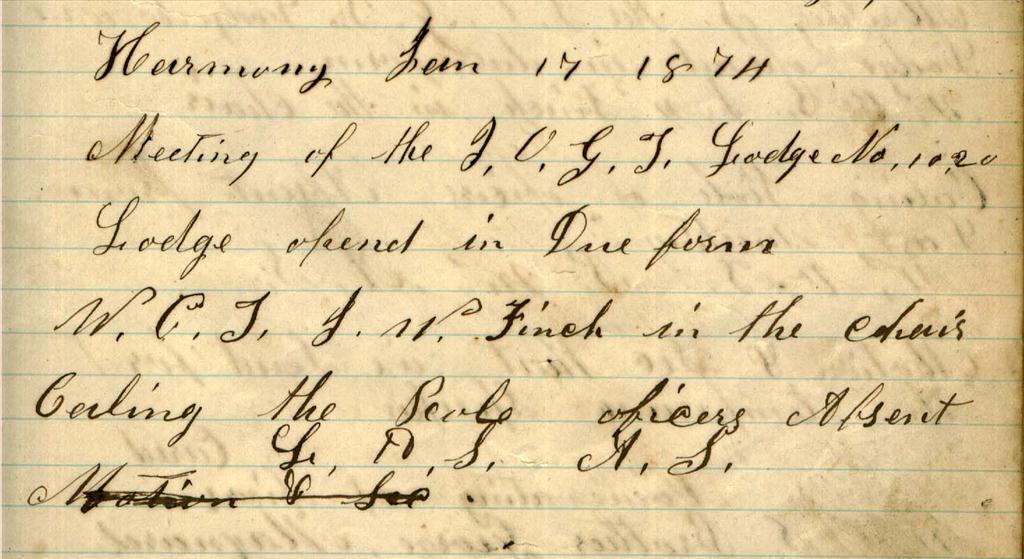 Harmony Jan 17 1874
Meeting of the I, O, G, T, Lodge No, 1020
Lodge opend in Due form
W. C. T. J. W. Finch in the chair
Caling the Roole officers Absent
L, D, S. A. S.
Motion & Sec